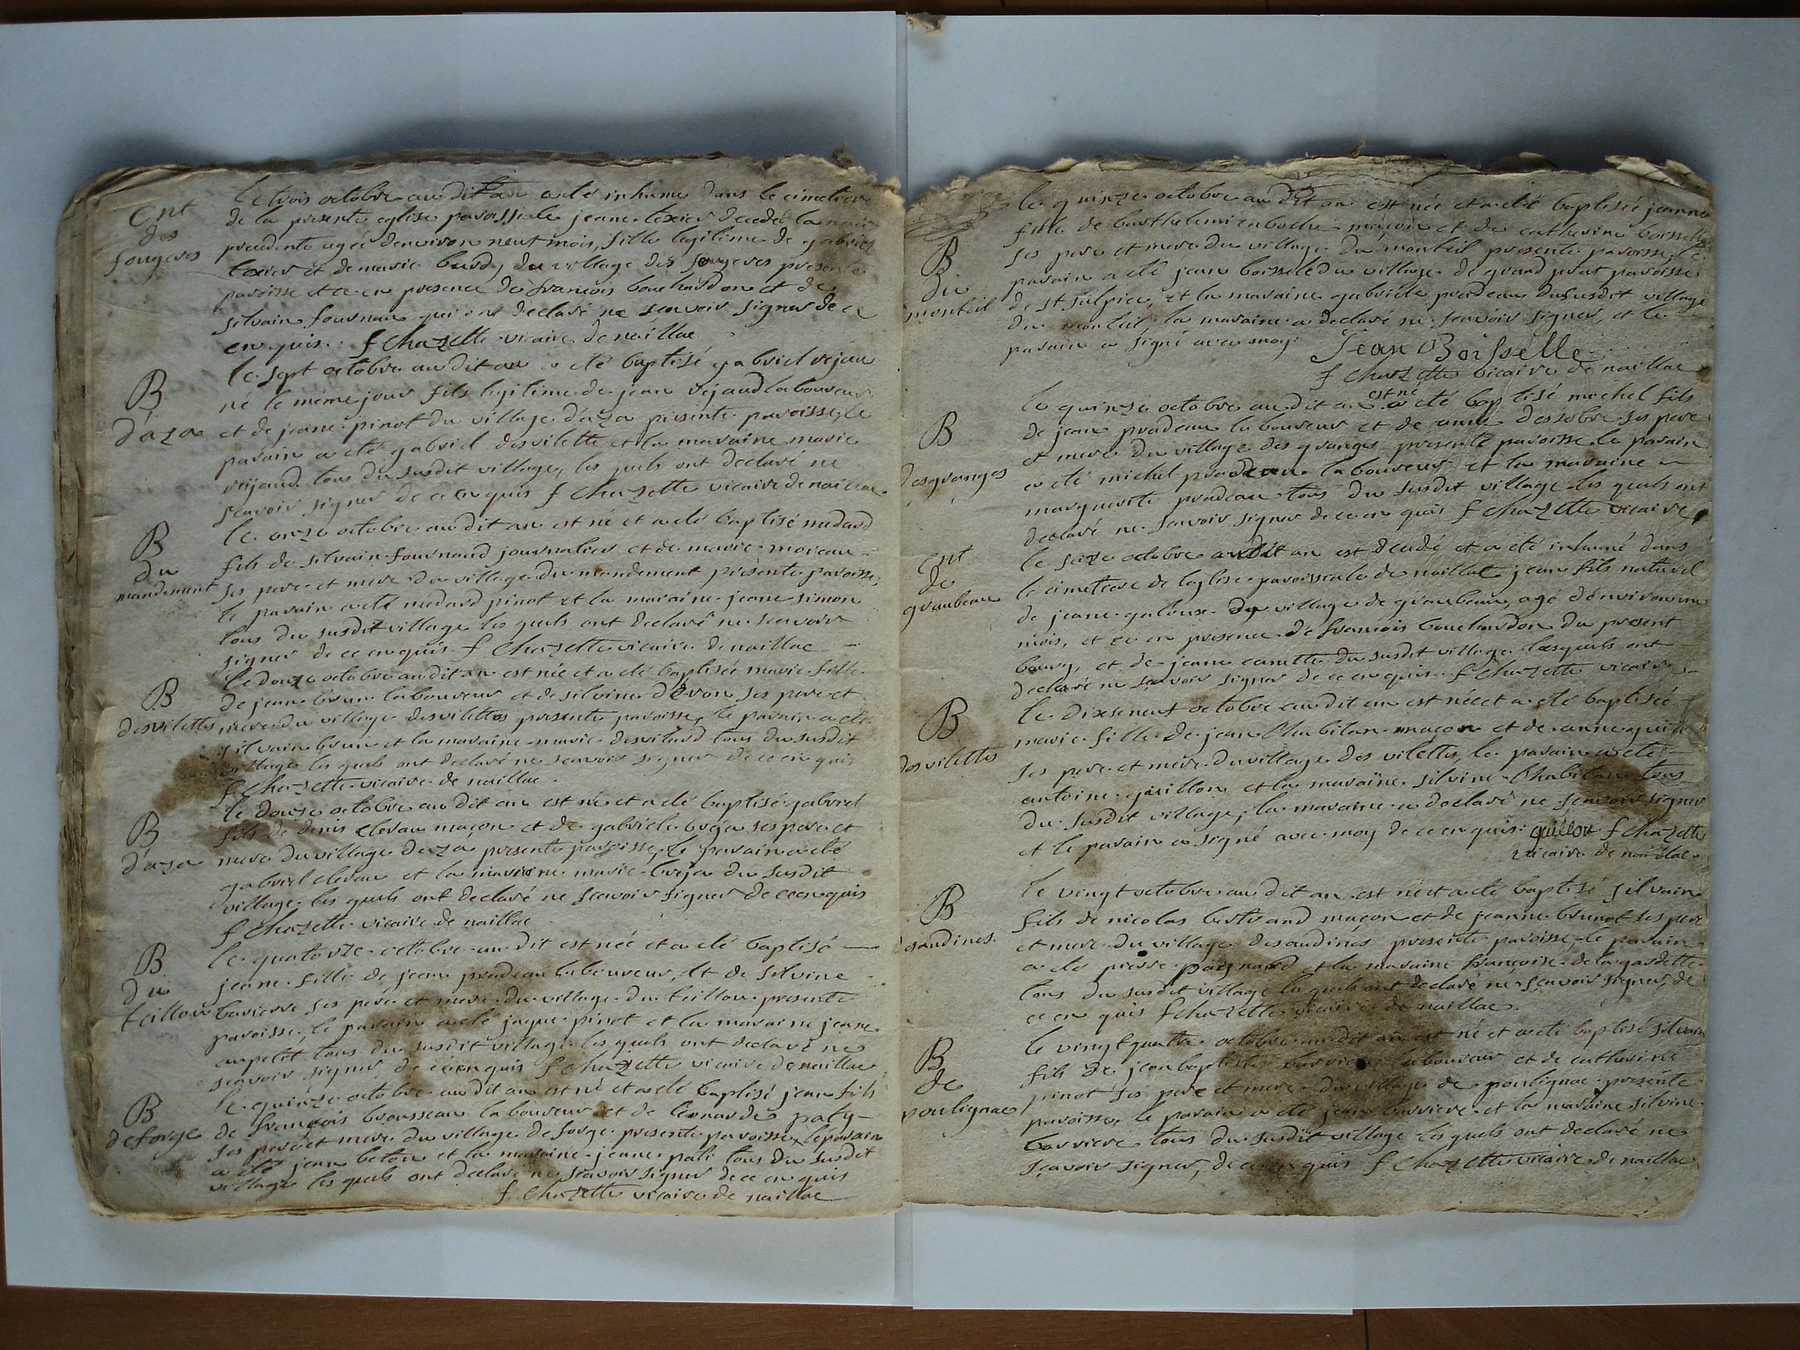 Ent
des
fougeres
le trois octobre audit an a eté inhumé dans le cimetiere
de la presente eglise paroissiale jeane texier decedé la nuit
precedente agée denviron neuf mois, fille legitime de gabriel
texier et de marie burdy du village des fougeres presente
paroisse et ce en presence de francois bouchardon et de
silvain fournau qui ont declaré ne scavoir signer de ce
enquis. f Chazette vicaire de naillac
B
d'aza
le sept octobre audit an a eté baptisé gabriel vejau
né le meme jour fils legitime de jean vejaud laboureur
et de jeane pinot du village d'aza presente paroisse, le
parain a eté gabriel desvilette et la maraine marie
vejaud tous du susdit village, les quels ont declaré ne
scavoir signer de ce enquis f Chazette vicaire de naillac
B
du
mandement
le onze octobre audit an est né et a eté baptisé medard
fils de silvain fournaud journalier et de marie moreau
ses pere et mere du village du mendement presente paroisse,
le parain a eté medard pinot et la maraine jeane simon
tous du susdit village les quels ont declaré ne scavoir
signer de ce enquis f Chazette vicaire de naillac
B
desvilettes
le douze octobre audit an est née et a eté baptisée marie fille
de jean brun laboureur et de silvine ses pere et
mere du village desvilettes presente paroisse, le parain a eté
silvain brun et la maraine marie desvilard tous du susdit
village les quels ont declaré ne scavoir signer de ce enquis
f Chazette vicaire de naillac
B
d'aza
le douze octobre audit an est né et a eté baptisé gabriel
fils de denis clavau maçon et de gabriele ses pere et
mere du village daza presente paroisse, le parain a eté
gabriel clavau et la maraine marie du susdit
village les quels ont declaré ne scavoir signer de ce enquis
f Chazette vicaire de naillac
B
du
teillou
le quatorze octobre audit est née et a eté baptisé
jeane fille de jean pradeau laboureur, et de silvine
bariere ses pere et mere du village du teillou presente
paroisse, le parain a eté jaque pinot et la maraine jeane
aupetit tous du susdit village les quels ont declaré ne
scavoir signer de ce enquis f Chazette vicaire de naillac
B
deforge
le quinze octobre audit an est né et a eté baptisé jean fils
de francois brousseau laboureur et de leonarde paly
ses pere et mere du village de forge presente paroisse, le parain
a eté jean beton et la maraine jeane pali tous du susdit
village les quels ont declaré ne scavoir signer de ce enquis
f Chazette vicaire de naillac
B
du
monteil
le quinze octobre audit an est née et a eté baptisée jeanne
fille de barthelemi maçon et de catherine boisselle
ses pere et mere du village du monteil presente paroisse, le
parain a eté jean boisselle du village de grand prat paroisse
de st sulpice, et la maraine gabriele pradeau du susdit village
du monteil la maraine a declaré ne scavoir signer, et le
parain a signé avec moy. Jean Boisselle
f Chazette vicaire de naillac
B
desgranges
est né
le quinze octobre audit an a eté baptisé michel fils
de jean pradeau laboureur et de ses pere
et mere du village des granges presente paroisse le parain
a eté michel pradeau laboureur et la maraine
marguerite pradeau tous du susdit village les quels ont
declaré ne scavoir signer de ce enquis f Chazette vicaire
Ent
de
graubeau
le seize octobre audit an est decedé et a eté inhumé dans
le cimetiere de leglise paroissiale de naillat jean fils naturel
de jeane du village de graubeau, agé denviron un
mois, et ce en presence de francois bouchardon du present
bourg, et de jeane du susdit village lesquels ont
declaré ne scavoir signer de ce enquis f Chazette vicaire
B
desvilettes
le dixseneuf octobre audit an est née et a eté baptisée
marie fille de jean Chabilan maçon et de anne
ses pere et mere du village des vilettes, le parain a eté
antoine quillon et la maraine silvine Chabilan tous
du susdit village; la maraine a declaré ne scavoir signer
et le parain a signé avec moy de ce enquis. quillon f Chazette
vicaire de naillac
B
desaudines.
le vingt octobre audit an est né et a eté baptisé silvain
fils de nicolas bertrand maçon et de jeanne brunot ses pere
et mere du village desaudines presente paroisse, le parain
a eté pierre poignard et la maraine francoise de la gardette
tous du susdit village les quels ont declaré ne scavoir signer, de
ce enquis f Chazette vicaire de naillac.
B
de
poulignac
le vingtquatre octobre audit an est né et a eté baptisé silvain
fils de jean baptiste barriere laboureur et de catherine
pinot ses pere et mere du village de poulignac presente
paroisse, le parain a eté jean barriere et la maraine silvine
barriere tous du susdit village les quels ont declaré ne
scavoir signer, de ce enquis f Chazette vicaire de naillac